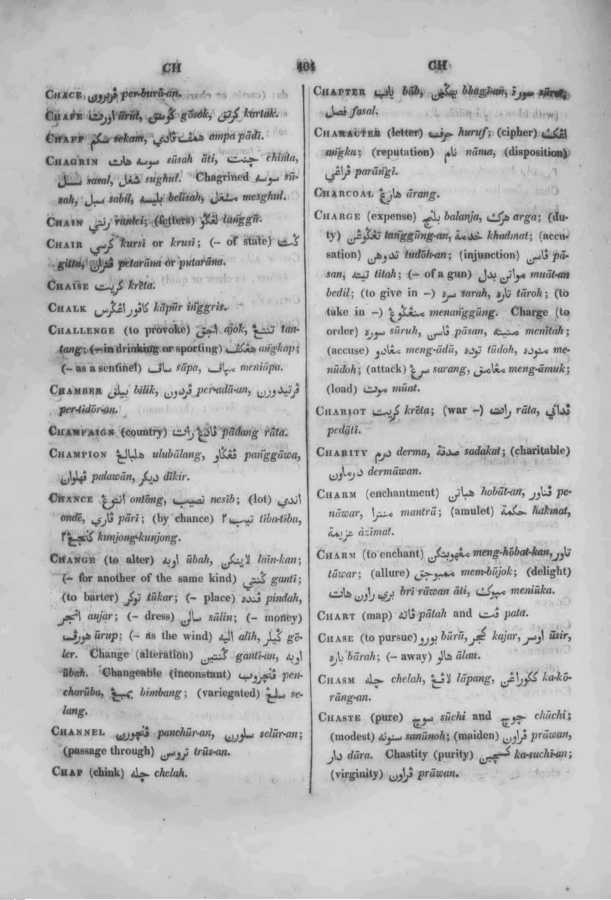 CH
404
CH
CHACE, ڤربورون per-burū-an.
CHAFE اورت ūrūt, گوسق gōsok, كرتق kartak.
CHAFF سكم sekam, همڤت ڤادي ampa pādi.
CHAGRIN سوسه هات sūsah āti, چنت chinta,
سسل sasal, شغل sughul. Chagrined سوسه sū-
sah, سبل sabil, بليسه belīsah, مشغل mesghul.
CHAIN رنتي rantei; (fetters) بلڠڬو
CHAIR كرسي kursi or krusi; (– of state) گت
gitta, ڤتران petarāna or putarāna.
CHAISE كريت krēta.
CHALK كاڤور اڠگرس kāpūr iṅggris.
CHALLENGE (to provoke) اجق ajok, تنتڠ tan-
tang; (– in drinking or sporting) اڠكڤ aṅgkap;
(– as a sentinel) ساڤ sāpa, مياڤ meniāpa.
CHAMBER بيلق bilik, ڤردون per-adū-an, ڤرتيدورن
per-tidōr-an.
CHAMPAIGN (country) ڤادڠ رات pādang rāta.
CHAMPION هلبالڠ ulubālang, ڤڠگاو paṅggāwa,
ڤهلوان palawān, ديكر dīkir.
CHANCE انتوڠ ontōng, نصيب nesīb; (lot) اندي
ondē, ڤاري pāri; (by chance) تيب٢ tība-tība,
كنجڠ٢ kunjong-kunjong.
CHANGE (to alter) اوبه ūbah, لاينكن laīn-kan;
(– for another of the same kind) گنتي ganti;
(to barter) توكر tūkar; (– place) ڤنده pindah,
انجر anjar; (– dress) سالن sālin; (– money)
هورڤ ūrup; (– as the wind) اليه alih, گيلر gē-
ler. Change (alteration) گنتين ganti-an, اوبه
ūbah. Changeable (inconstant) ڤنچروب pen-
charūba, بمبڠ bimbang; (variegated) سلڠ se-
lang.
CHANNEL ڤنچورن panchūr-an, سلورن selūr-an;
(passage through) تروسن trūs-an.
CHAP (chink) چله chelah.
CHAPTER باب bāb, بهگين bhagī-an, سورة sūrat,
فصل fasal.
CHARACTER (letter) حرف huruf; (cipher) اڠك
aṅgka; (reputation) نام nāma, (disposition)
ڤراڠي parāṅgi.
CHARCOAL هارڠ ārang.
CHARGE (expense) بلنج balanja, هرك arga; (du-
ty) تڠگوڠن taṅggūng-an, خدمة khadmat; (accu-
sation) تدوهن tudōh-an; (injunction) ڤاسن pā-
san, تيته titah; (– of a gun) مواتن بدل muāt-an
bedil; (to give in –) سره sarah, تاره tāroh; (to
take in –) منڠگوڠ menaṅggūng. Charge (to
order) سوره sūruh, ڤاسن pāsan, منيته menītah;
(accuse) مڠادو meng-ādū, توده tūdoh, منوده me-
nūdoh; (attack) سرڠ sarang, مڠامق meng-āmuk;
(load) موت mūat.
CHARIOT كريت krēta; (war –) رات rāta, ڤداتي
pedāti.
CHARITY درم derma, صدقة sadakat; (charitable)
درماون dermāwan.
CHARM (enchantment) هباتن hobāt-an, ڤناور pe-
nāwar, منترا mantrā; (amulet) حكمة hakmat,
عزيمة āzīmat.
CHARM (to enchant) مڠهوبتكن meng-hōbat-kan, تاور
tāwar; (allure) ممبوجق mem-būjok; (delight)
بري راون هات bri rāwan āti, ميوك meniūka.
CHART (map) ڤاته pātah and ڤت pata.
CHASE (to pursue) بورو būrū, كجر kajar, اوسر ūsir,
باره bārah; (– away) هالو ālau.
CHASM چله chelah, لاڤڠ lāpang, ككوراڠن ka-kō-
rāng-an.
CHASTE (pure) سوچي sūchi and چوچي chūchi;
(modest) سنونه sanūnoh; (maiden) ڤراون prāwan,
دار dāra. Chastity (purity) كسچين ka-suchi-an;
(virginity) ڤراون prāwan.